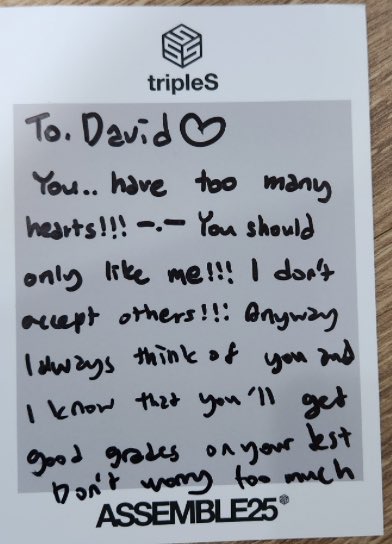 tripleS
To. David ♡
You.. have too many
hearts!!! -.- You should
only like me!!! I don't
accept others!!! Anyway
I always think of you and
I know that you'll get
good grades on your test
Don't worry too much
ASSEMBLE25